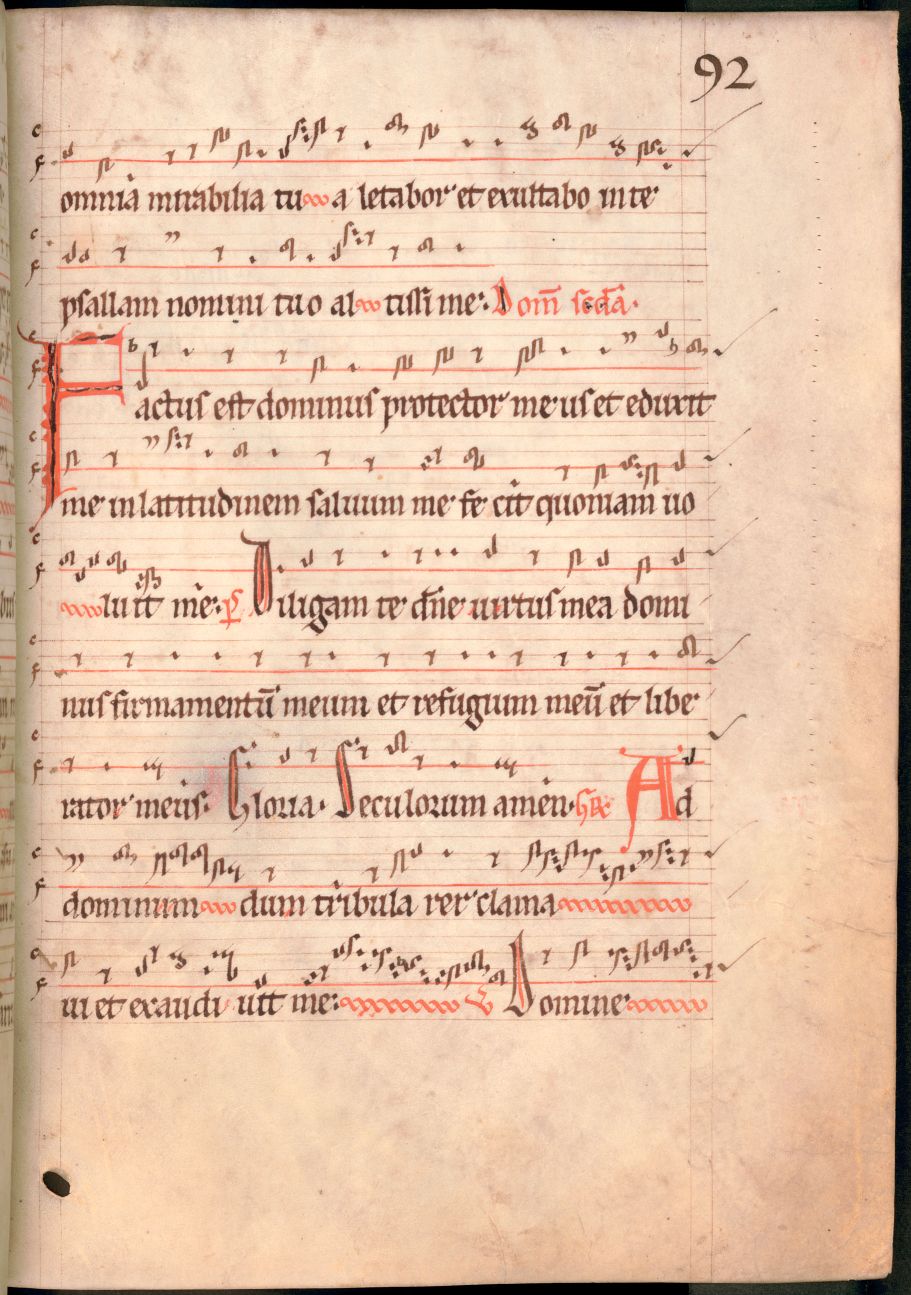 92
omnia mirabilia tu a letabor et exultabo in te
psallam nomini tuo al tissi me. Dom̄ scda.
Factus est dominus protector meus et eduxit
me in latitudinem saluum me fe cit quoniam uo
luit me. ps Diligam te dn̄e uirtus mea domi
nus firmamentū meum et refugium meū et libe
rator meus. Gloria. Seculorum amen. Gr̄. Ad
dominum dum tribula rer clama
ui et exaudi uit me. V Domine